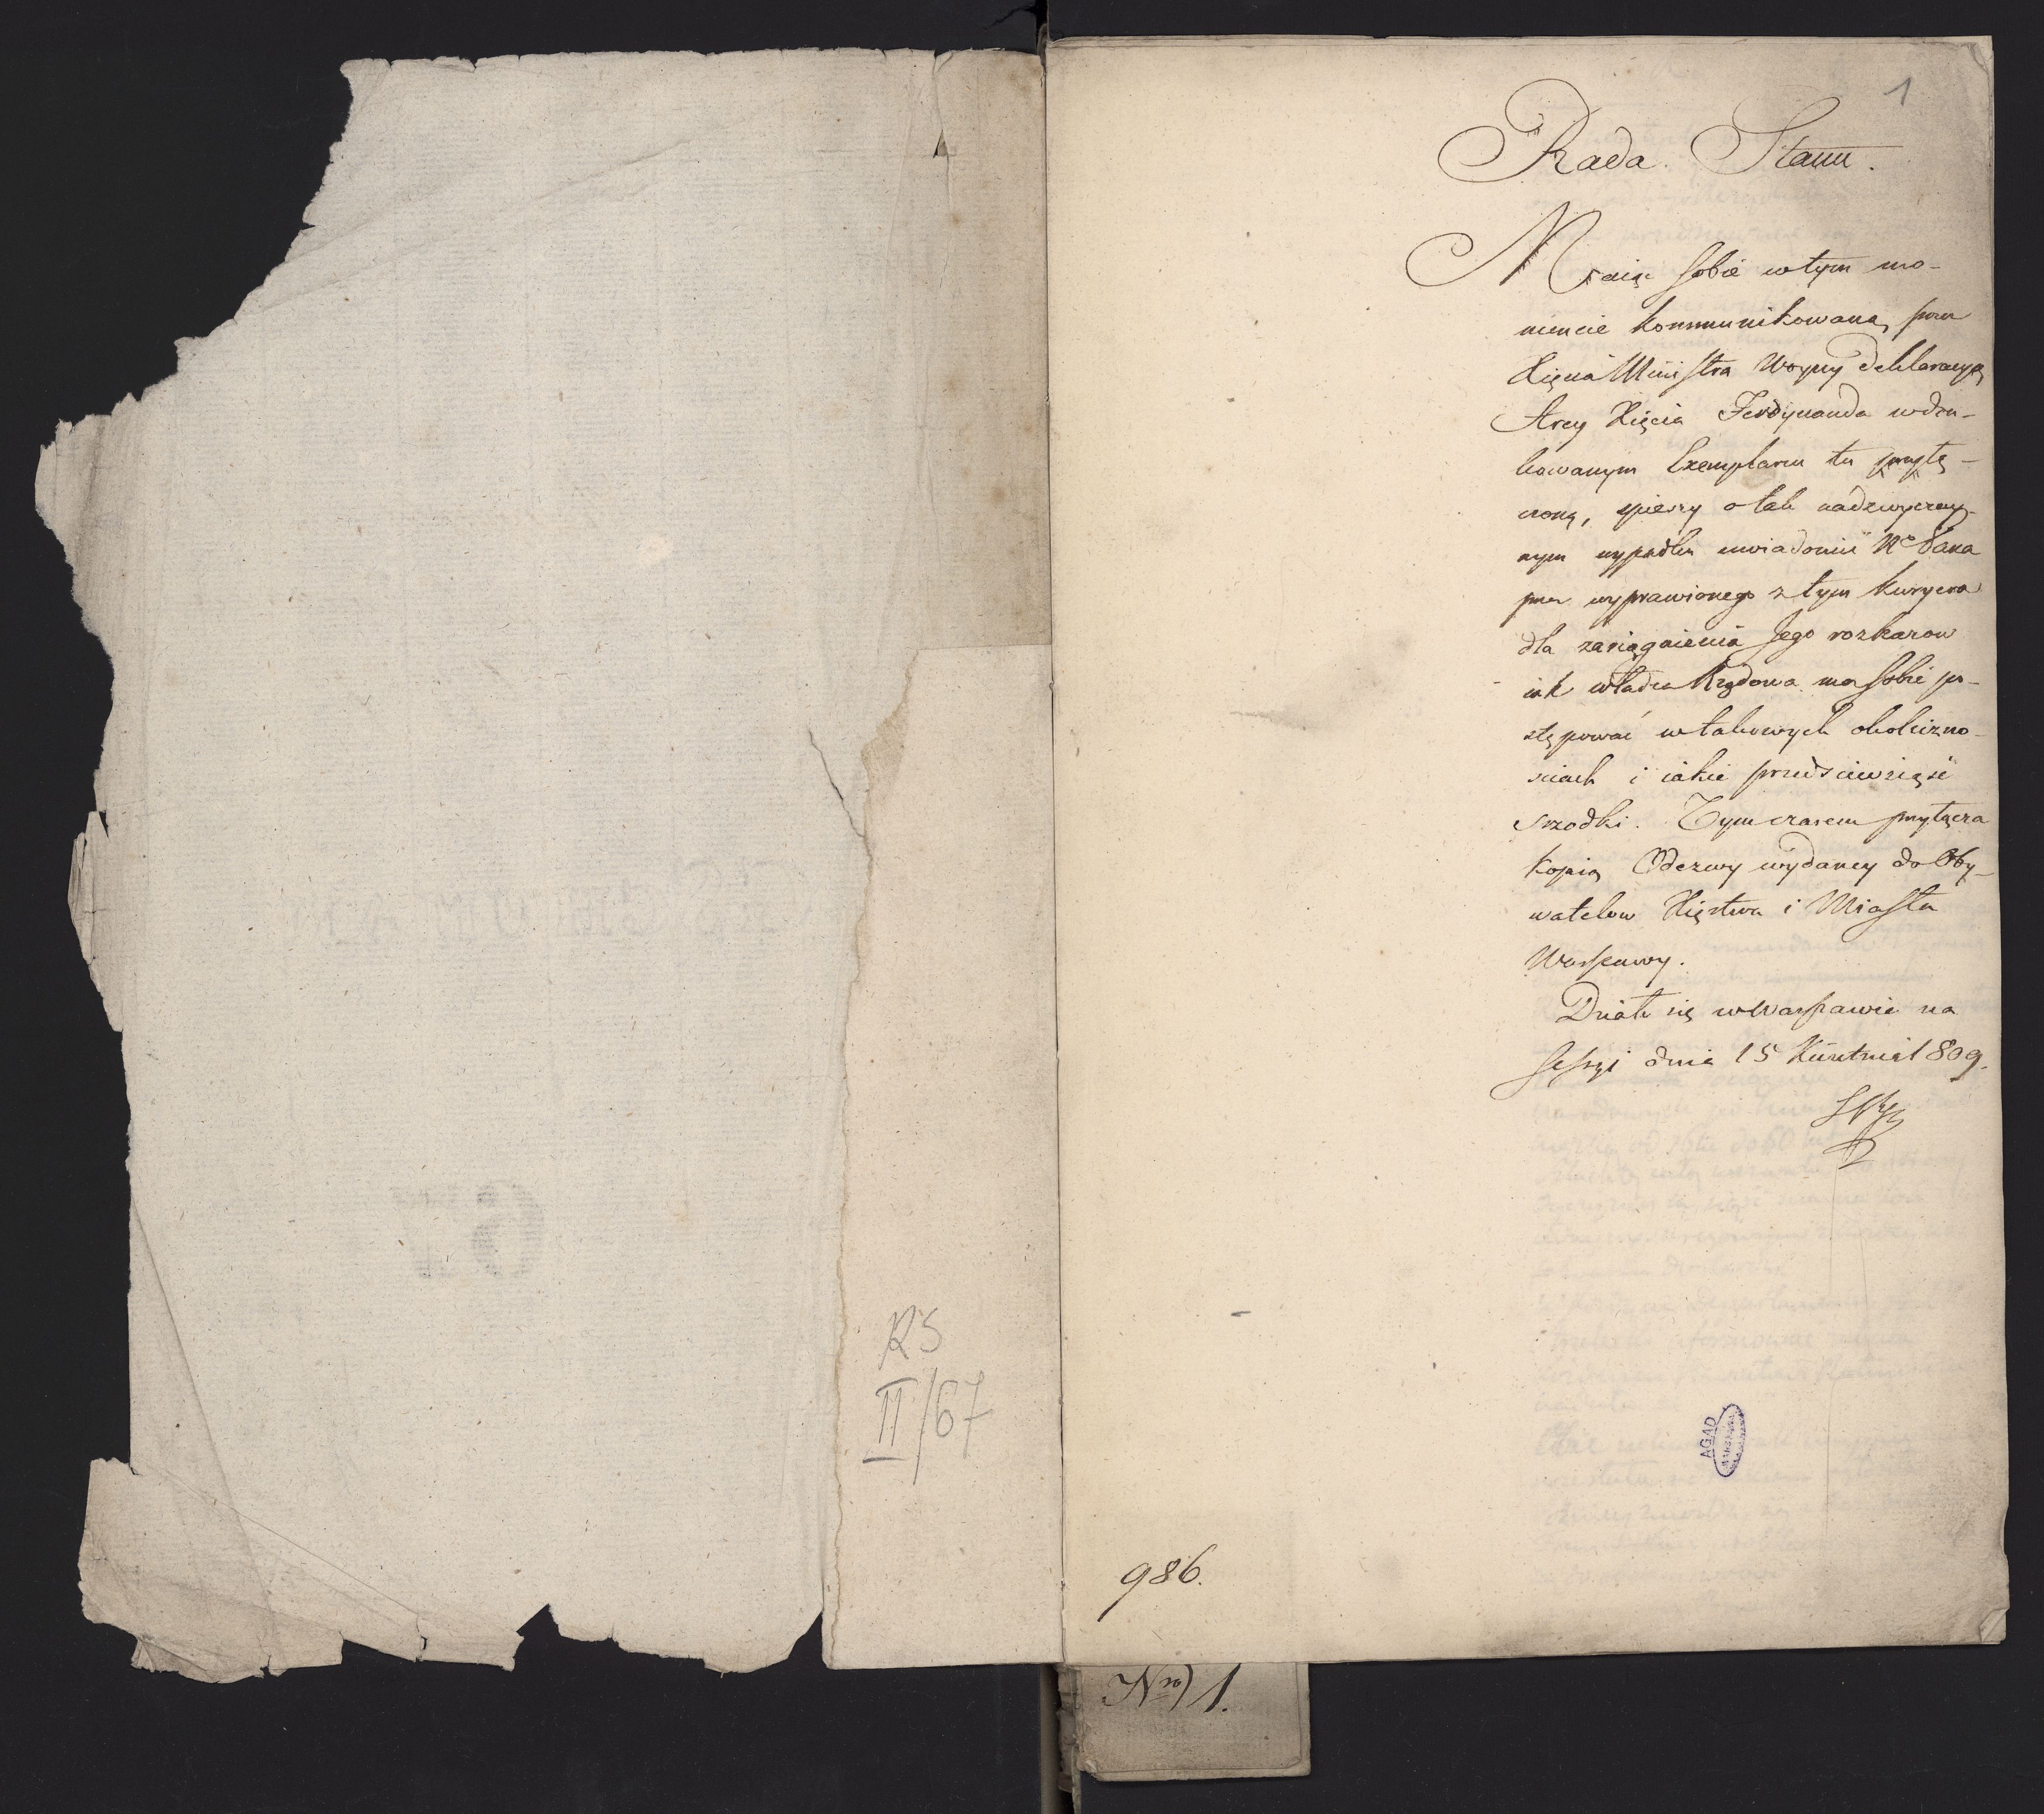 RS
II/67
1
Rada Stanu.
Maiąc sobie w tym mo-
mencie kommunikowaną przez
Xięcia Ministra Woyny deklaracyą
Arcy Xięcia Ferdynanda w dru-
kowanym Exemplarzu tu przyłą-
czoną, spieszy o tak nadzwyczay-
nym wypadku uwiadomić Nº Pana
przez wyprawionego z tym Kuryera
dla zasiągnienia Jego rozkazow
iak władza Rządowa ma sobie po-
stępować w takowych okoliczno-
sciach i iakie przedsięwziąść
srzodki. Tymczasem przyłącza
kopią Odezwy wydaney do Oby-
watelow Xięstwa i Miasta
Warszawy.
Działo się w Warszawie na
Sessyi dnia 15 Kwietnia 1809.
AGAD
WARSZAWA
986.
Nro) 1.